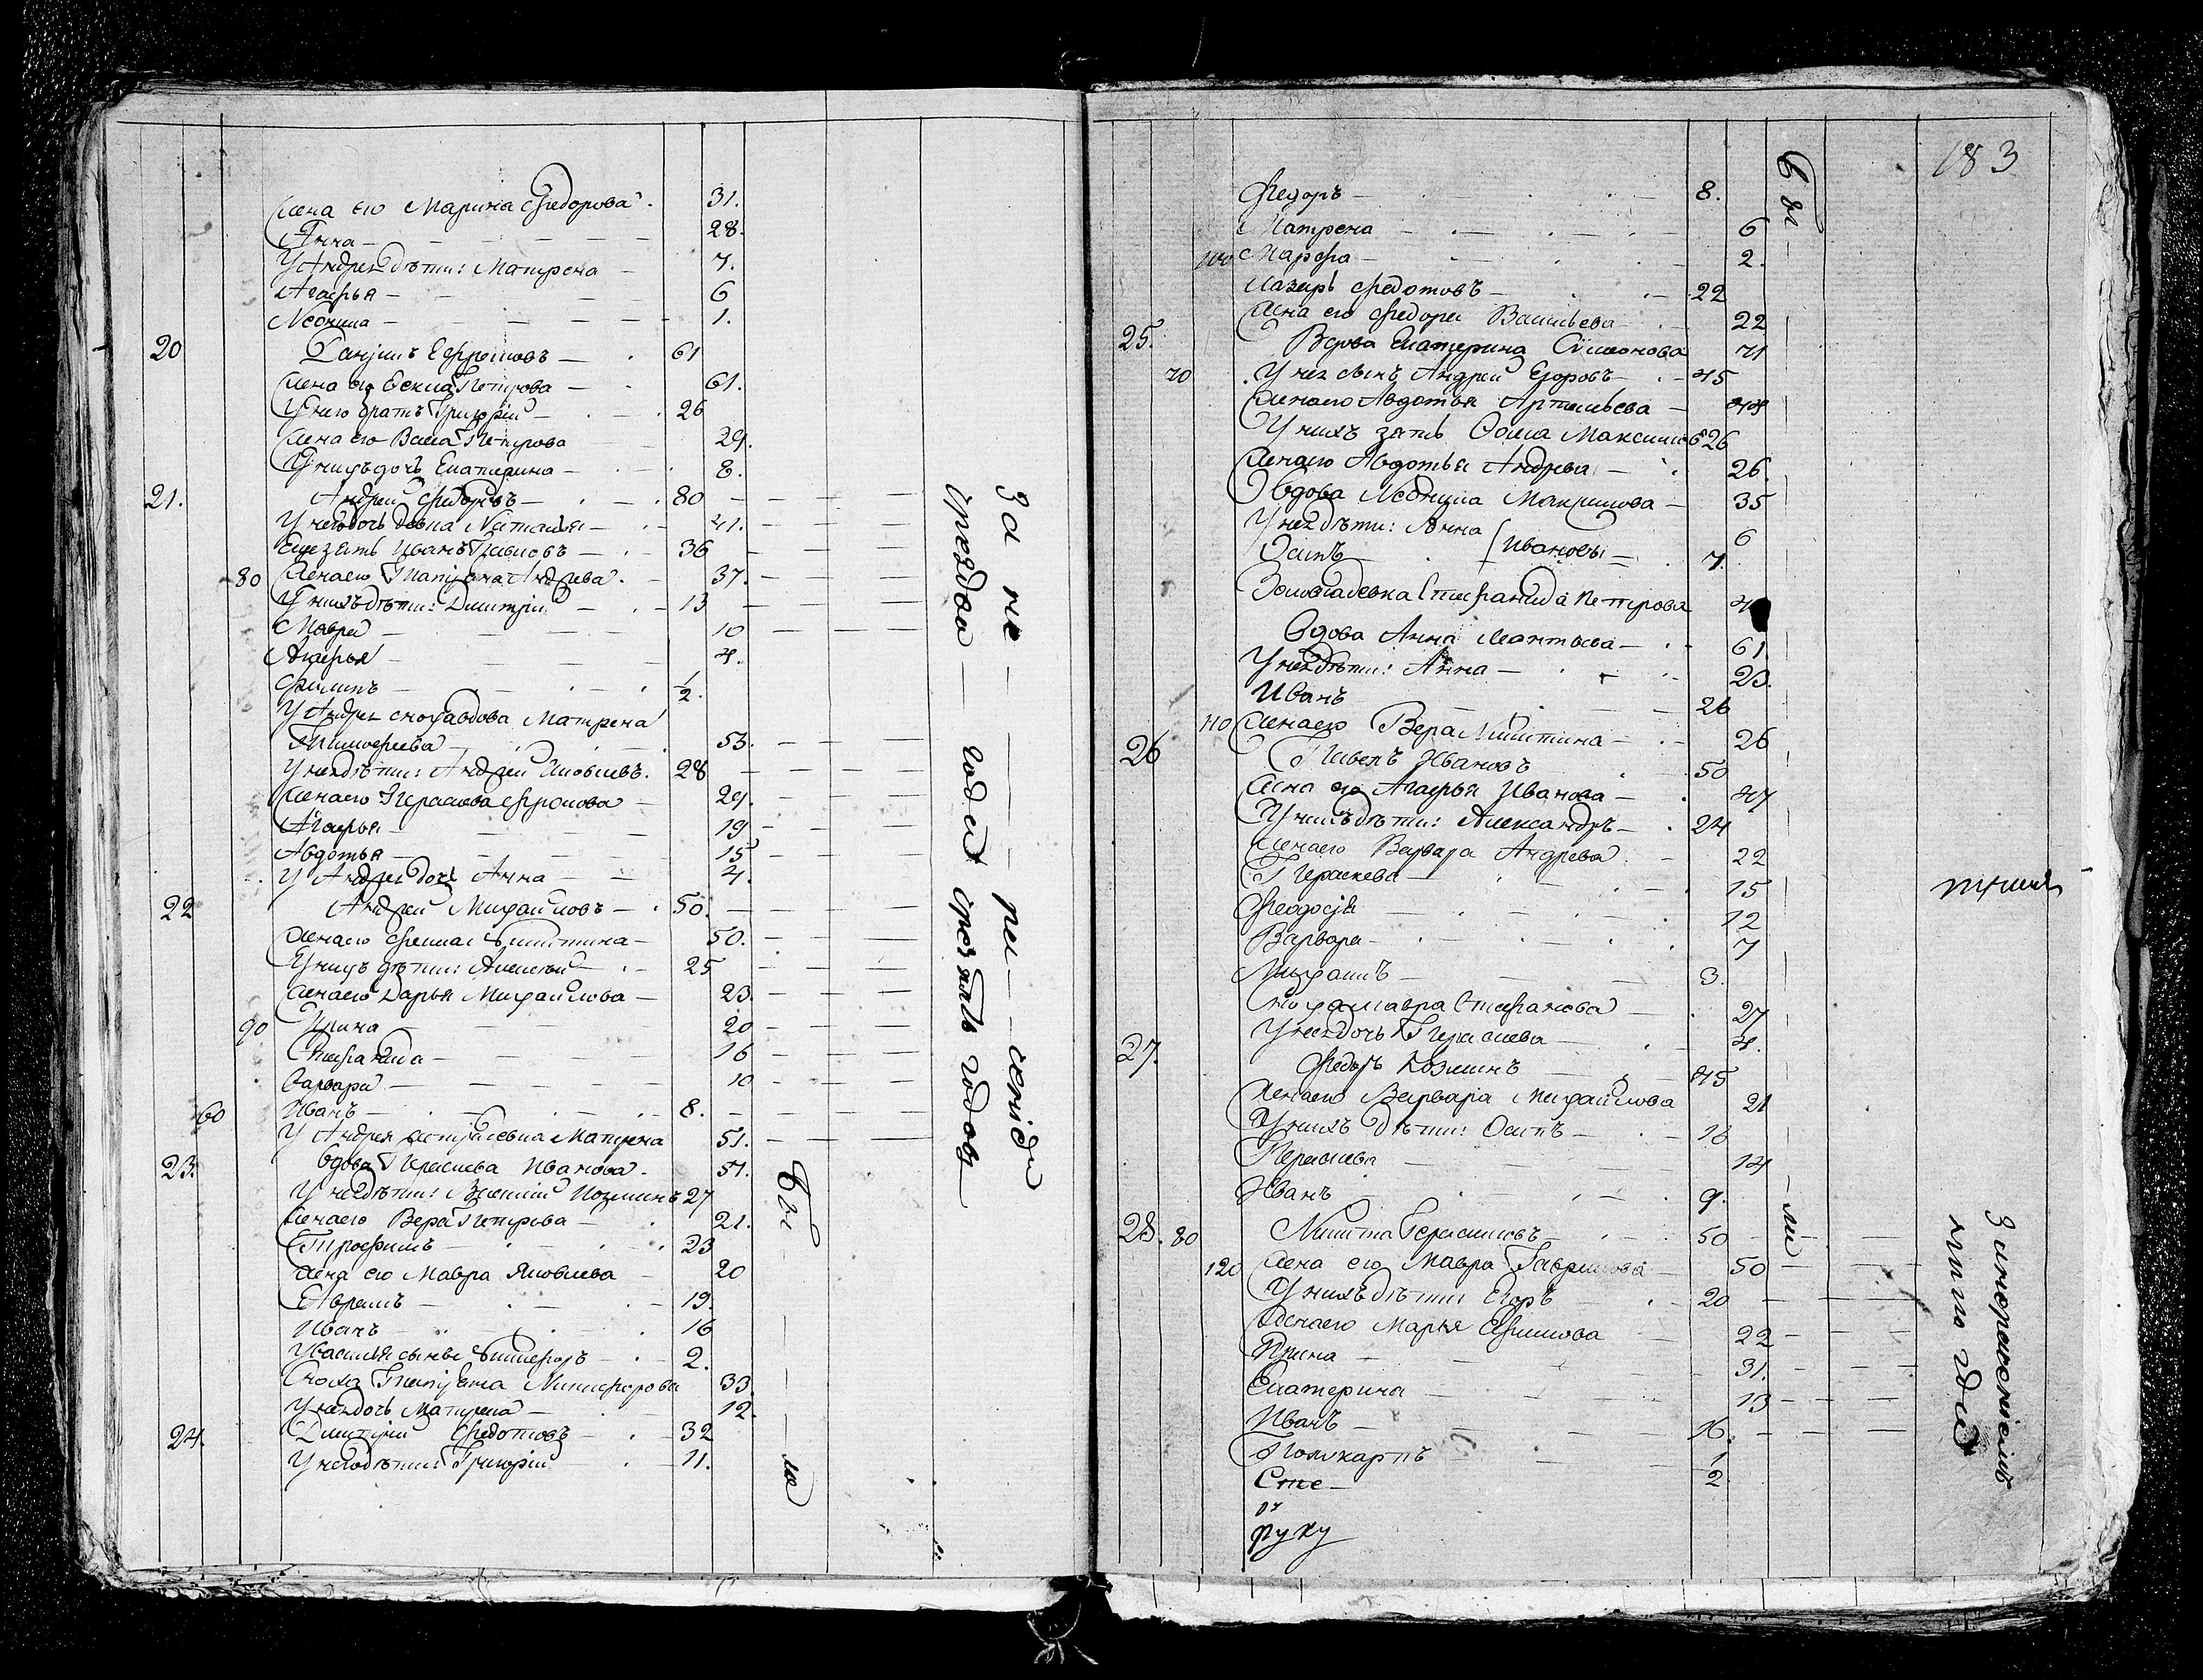 Жена его Марина Федорова 31.
Анна 28.
У Андрея дѣти: Матрена 7.
Агафья 6
Неонила 1.
20 Данила Ефремовъ 61
Жена его Петрова 61.
У него братъ Григорій 26
Жена его Петрова 29.
У нихъ дочь Екатерина 8.
21. Андрей Федоровъ 80
У него дочь девка Наталья 41.
Еще зять Иванъ 36
80 Жена его Татьяна Андреева 37.
У нихъ дѣти: Дмитрій 13
Мавра 10
Агафья 4.
Филипъ 1/2.
У Андрея сноха вдова Матрена
Тимофеева 53.
У нея дѣти: Андрей Яковлевъ 28
Жена его Фролова 29.
Агафья 19
Авдотья 15
У Андрея дочь Анна 4.
22 Андрей Михайловъ 50.
Жена его Никитина 50.
У нихъ дѣти: Алексѣй 25
Жена его Дарья Михайлова 23.
90 Ирина 20
Степанида 16
Варвара 10
60 Иванъ 8.
У Андрея Матрена 51.
23. Вдова Парасковья Иванова 51.
У нея дѣти: Василій Козминъ 27
Жена его Вера Петрова 21.
Трофимъ 23
Жена его Мавра Яковлева 20
Аврамъ 19.
Иванъ 16
У Василья сынъ Никифоръ 2.
Сноха Татьяна Никифорова 33.
У нея дочь Матрена 12.
24. Дмитрій Федотовъ 32
У него дѣти: Григорій 11.
За не — ре — сеніемъ
года
Бы — ла
183
Федоръ 8.
Матрена 6
100 Марфа 2.
Лазарь Федотовъ 22
Жена его Федора Васильева 22
25. Вдова Екатерина Симонова 71
70 У нея сынъ Андрей Егоровъ 45
Жена его Авдотья Артемьева 44
У нихъ зять Фома Максимовъ 26
Жена его Авдотья Андреева 26.
Вдова Неонила Макримова 35
У нея дѣти: Анна 6
Осипъ Ивановы 7.
Степанида Петрова
Вдова Анна Леонтьева 61.
У нея дѣти: Анна 23.
Иванъ 26
110 Жена его Вера Никитина 26
26 Павелъ Ивановъ 50
Жена его Агафья Иванова 47
У нихъ дѣти: Александръ 24
Жена его Варвара Андреева 22
Парасковья 15
Феодосія 12
Варвара 7
Михаилъ 3.
Сноха Мавра Степанова 27
У нея дочь Парасковья 4.
27. Федоръ Козминъ 45
Жена его Варвара Михайлова 21
У нихъ дѣти: Осипъ 16
Парасковья 14
Иванъ 9.
28. 80 Никита Герасимовъ 50
120 Жена его Мавра Гаврилова 50
У нихъ дѣти: Егоръ 20
Жена его Марья Ефимова 22
Ирина 31.
Екатерина 13
Иванъ 16.
Поликарпъ 1/2
Сте
руку
Бы — ли